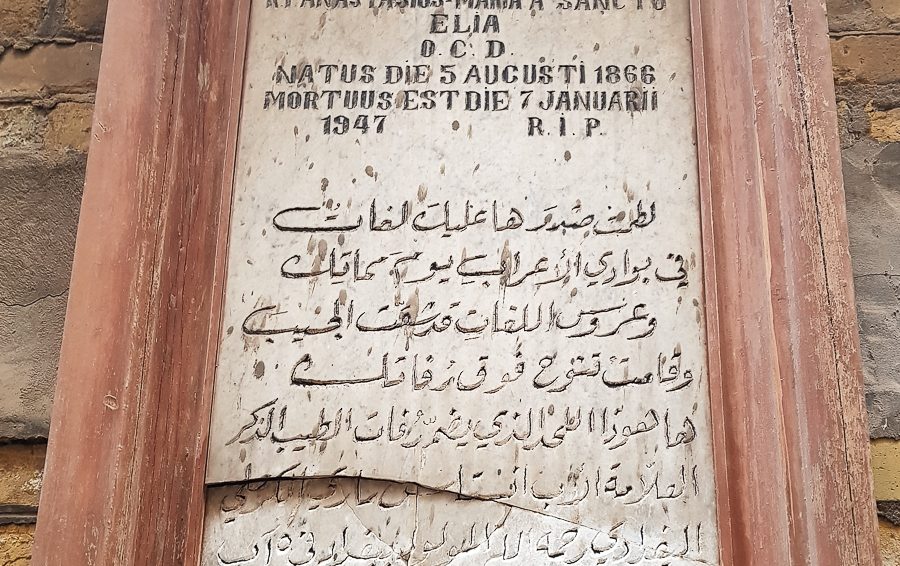 P. ANASTASIUS-MARIA A SANCTO
ELIA
O. C. D.
NATUS DIE 5 AUGUSTI 1866
MORTUUS EST DIE 7 JANUARII
1947 R. I. P.
لطمت صدرها عليك لغات
في بوادي الأعراب يوم مماتك
وعروس اللغات قد شقت الجيب
وقامت تنوح فوق رفاتك
ها هوذا اللحد الذي يضم رفات الطيب الذكر
العلامة الأب انستاس ماري الكرملي
البغدادي رحمه الله المولود ببغداد في ٥ آب